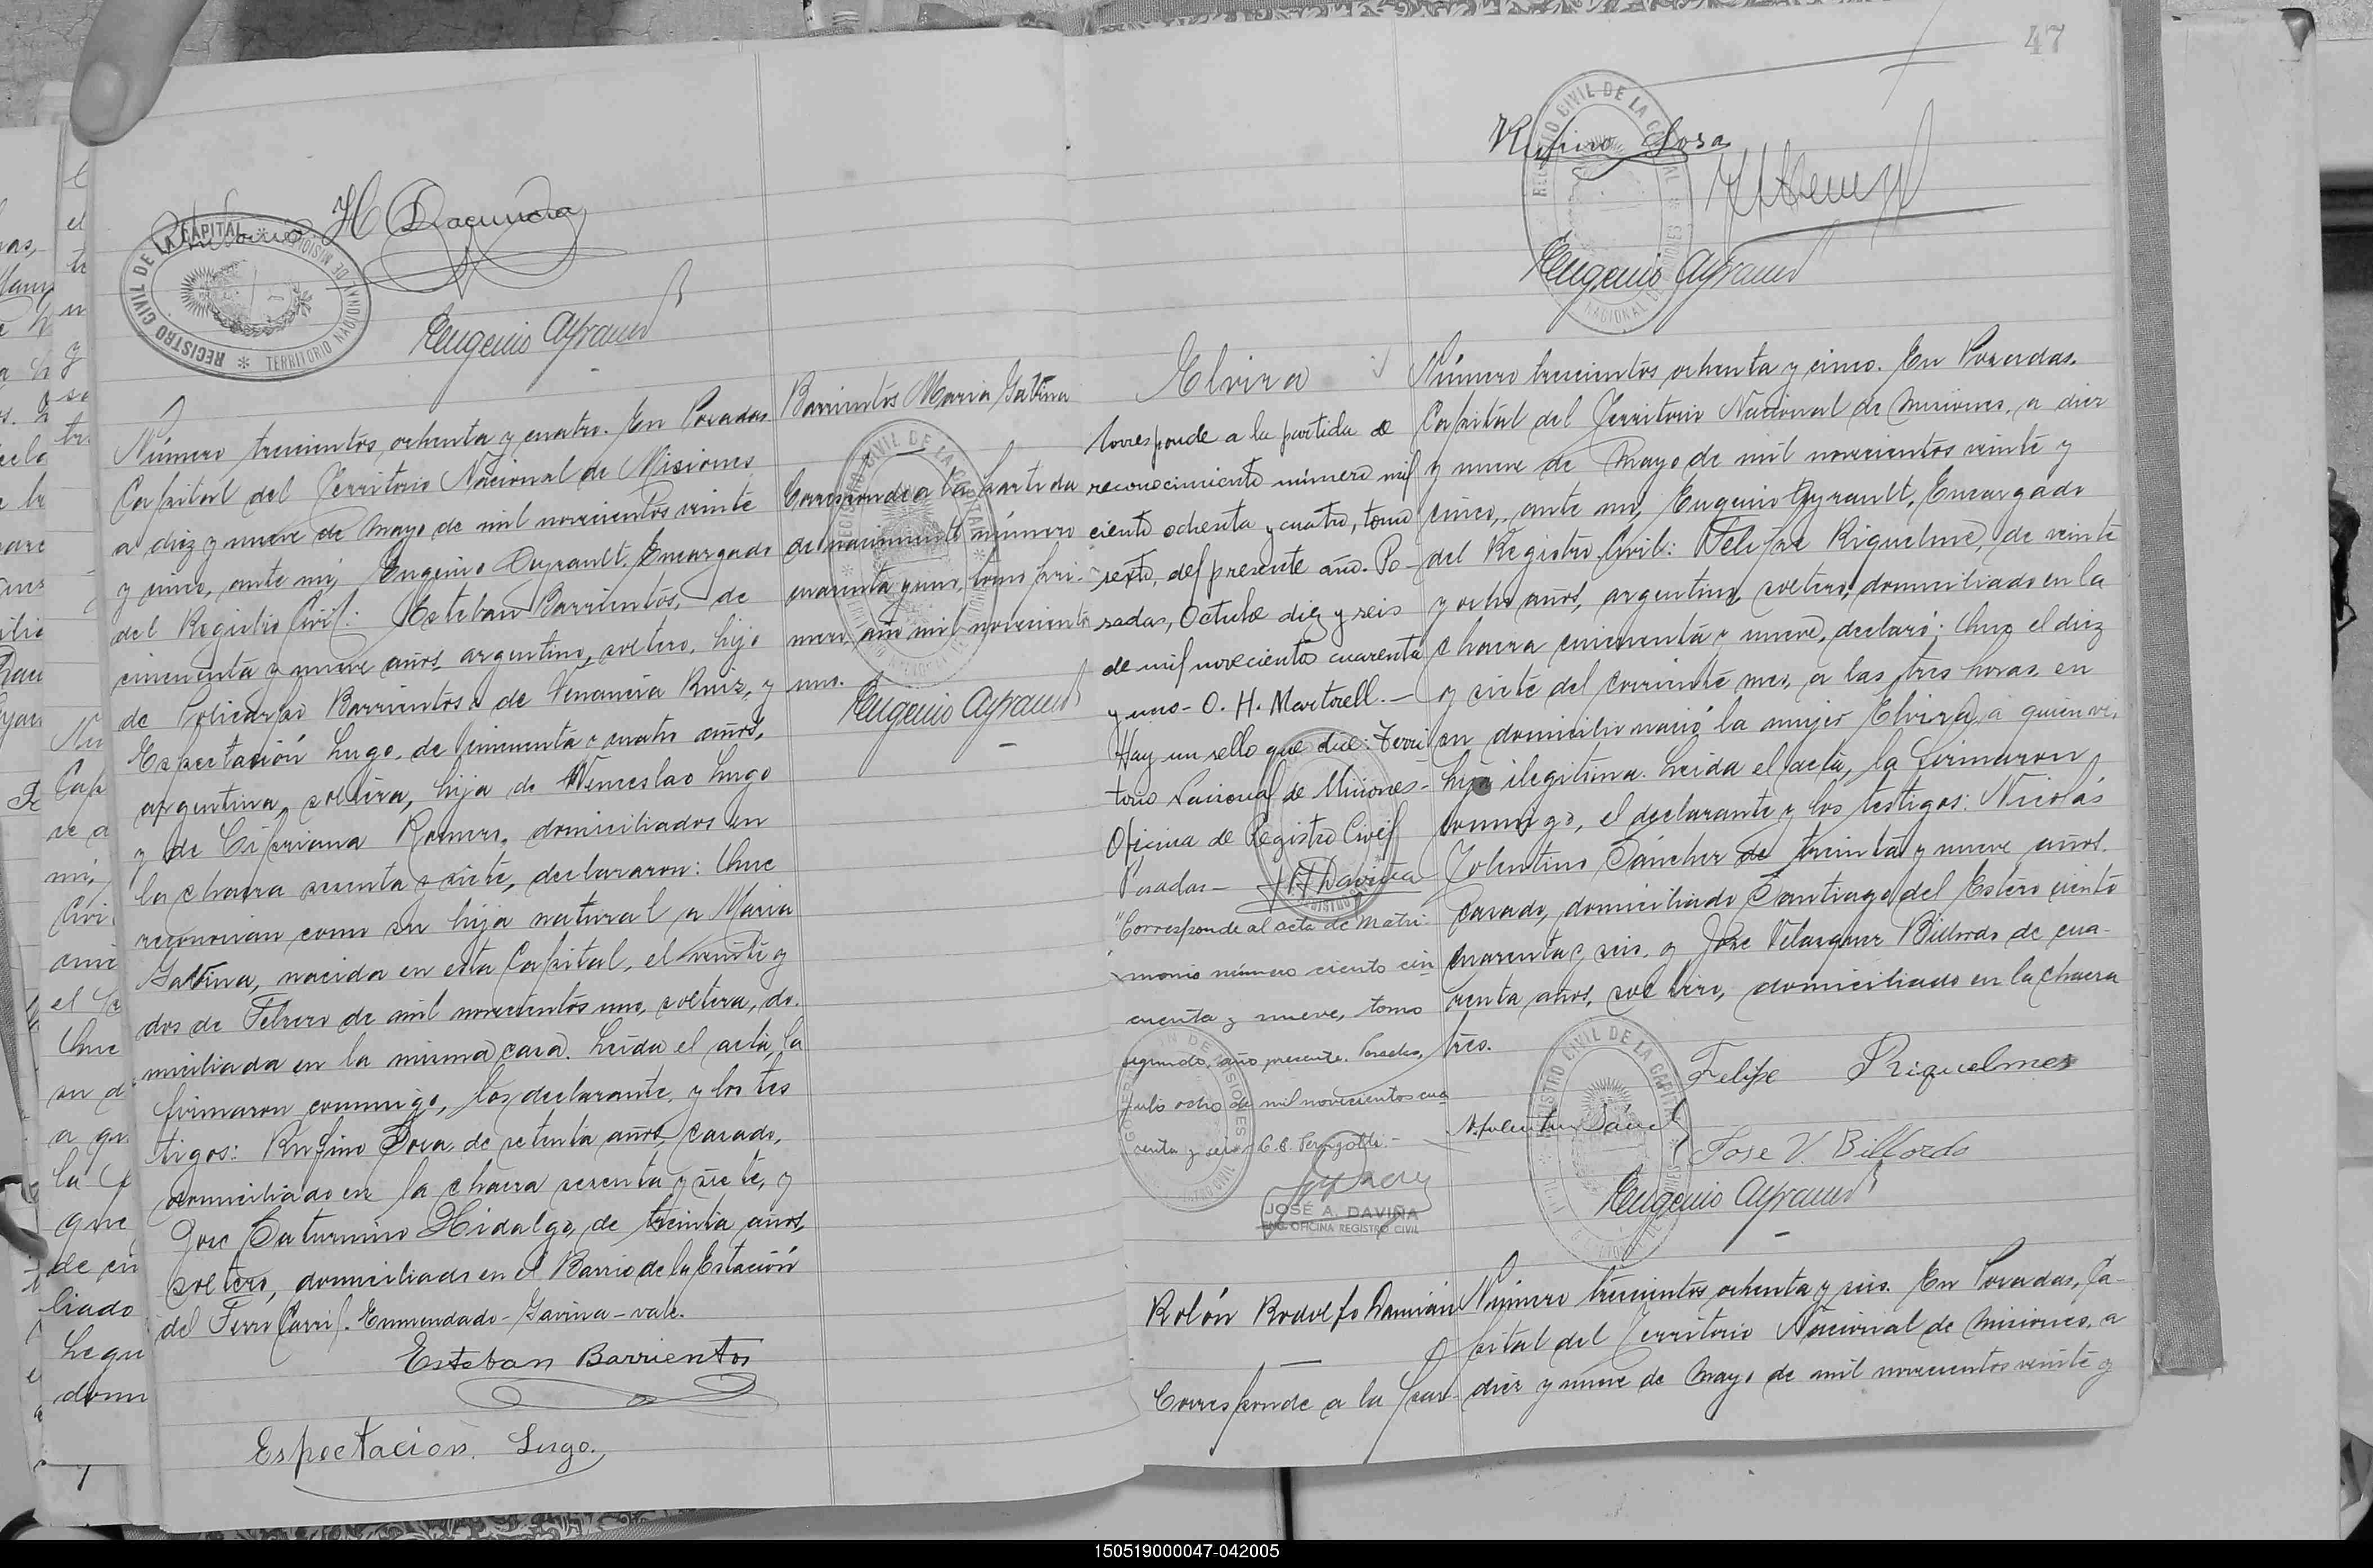 H Dacunda
REGISTRO CIVIL DE LA CAPITAL * TERRITORIO NACIONAL DE MISIONES *
Eugenio Ayrault
Número trescientos ochenta y cuatro. En Posadas
Capital del Territorio Nacional de Misiones
a diez y nueve de Mayo de mil novecientos veinte
y cinco, ante mi, Eugenio Ayrault, Encargado
del Registro Civil: Esteban Barrientos, de
cincuenta y nueve años, argentino, soltero, hijo
de Policarpo Barrientos y de Venancia Ruiz, y
Espectasión Lugo, de cincuenta y cuatro años,
argentina, soltera, hija de Wenceslao Lugo
y de Cipriana Romero, domiciliados en
la chacra sesenta y siete, declararon: Que
reconocian como su hija natural a Maria
Gavina, nacida en esta Capital, el veinte y
dos de Febrero de mil novecientos uno, soltera, do-
miciliada en la misma casa. Leida el acta, la
firmaron conmigo, los declarante, y los tes
tigos: Rufino Sosa, de setenta años, casado,
domiciliado en la chacra sesenta y siete, y
Jose Saturnino Hidalgo, de treinta años,
soltero, domiciliado en el Barrio de la Estación
del Ferro Carril. Enmendado - Gavina - vale.
Esteban Barrientos
Espectacion Lugo.
Barrientos Maria Gavina
Corresponde a la partida
de nacimiento número
cuarenta y uno, tomo pri-
mero, año mil novecientos
uno.
Eugenio Ayrault
47
Rufino Sosa
Eugenio Ayrault
Elvira
Corresponde a la partida de
reconocimiento número mil
ciento ochenta y cuatro, tomo
sexto, del presente año. Po-
sadas, Octubre diez y seis
de mil novecientos cuarenta
y uno - O. H. Martorell. -
Hay un sello que dice: Terri
torio Nacional de Misiones -
Oficina de Registro Civil
Posadas -
"Corresponde al acta de Matri-
monio número ciento cin
cuenta y nueve, tomo
segundo, año presente. Posadas,
Julio ocho de mil novecientos cua
renta y
JOSÉ A. DAVIÑA
ENC. OFICINA REGISTRO CIVIL
Número trescientos ochenta y cinco. En Posadas,
Capital del Territorio Nacional de Misiones, a diez
y nueve de Mayo de mil novecientos veinte y
cinco, ante mi, Eugenio Ayrault, Encargado
del Registro Civil: Felipe Riquelme, de veinte
y ocho años, argentino, soltero, domiciliado en la
chacra cincuenta y nueve, declaró: Que el diez
y siete del corriente mes, a las tres horas, en
su domicilio nació la mujer Elvira, a quien ve,
hija ilegitima. Leida el acta, la firmaron
conmigo, el declarante y los testigos: Nicolás
Tolentino Sánchez de treinta y nueve años,
casado, domiciliado Santiago del Estero ciento
cuarenta y seis, y Jose Velazquez Billordo de cua-
renta años, soltero, domiciliado en la chacra
tres.
Felipe Riquelmes
Jose V. Billordo
Eugenio Ayrault
Rolón Rodolfo Damián
Corresponde a la par-
Número trescientos ochenta y seis. En Posadas, Ca-
pital del Territorio Nacional de Misiones, a
diez y nueve de Mayo de mil novecientos veinte y
150519000047-042005